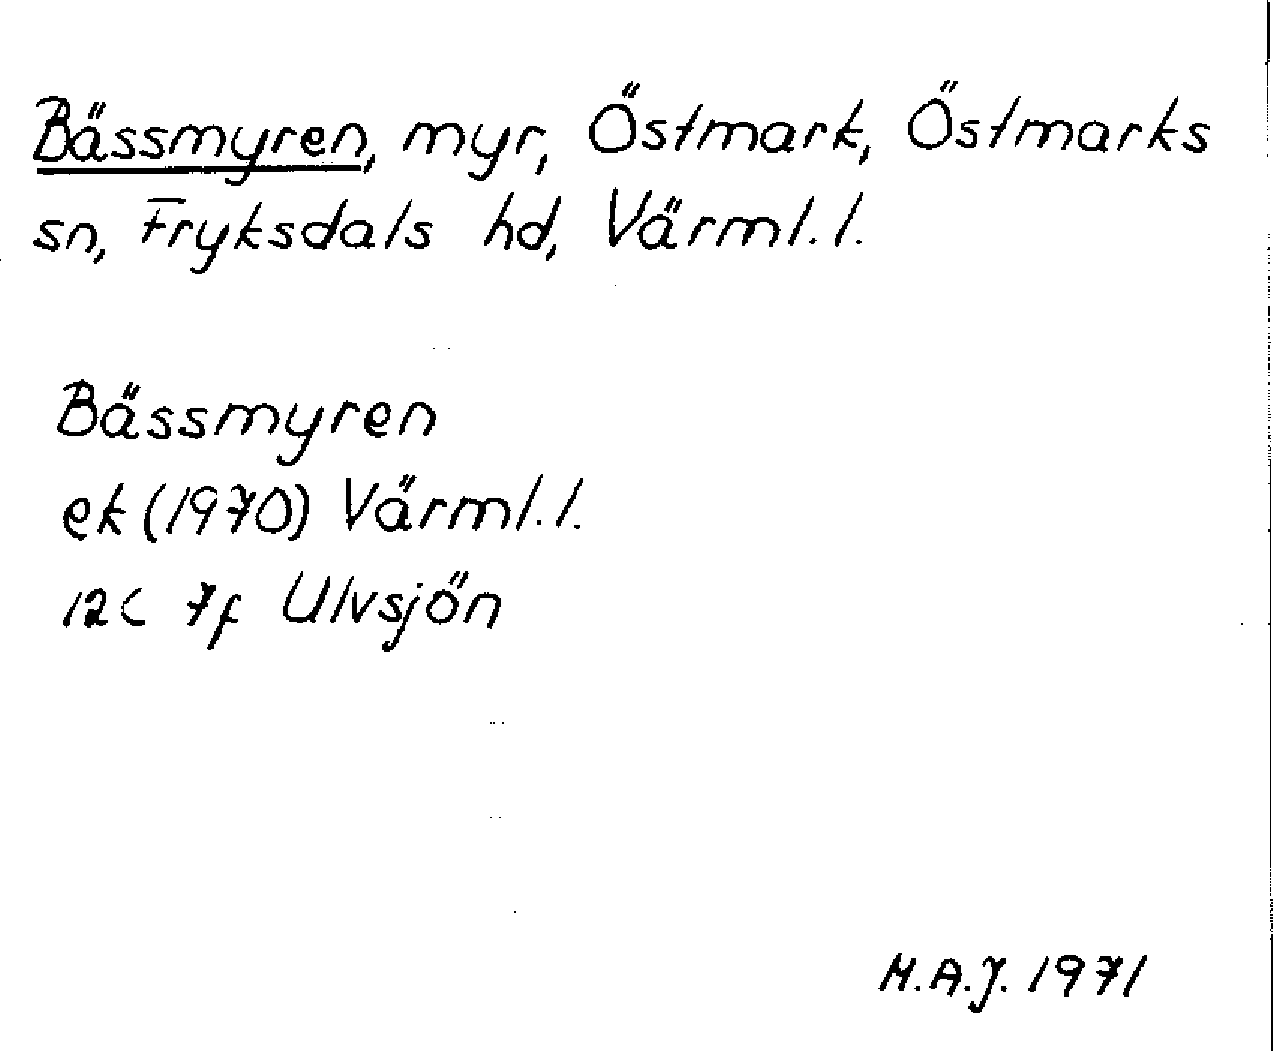 Bässmyren, myr, Östmark, Östmarks
sn, Fryksdals hd, Värml. l.
Bässmyren
ek (1970) Värml. l.
12C 7f Ulvsjön
M.A.J. 1971